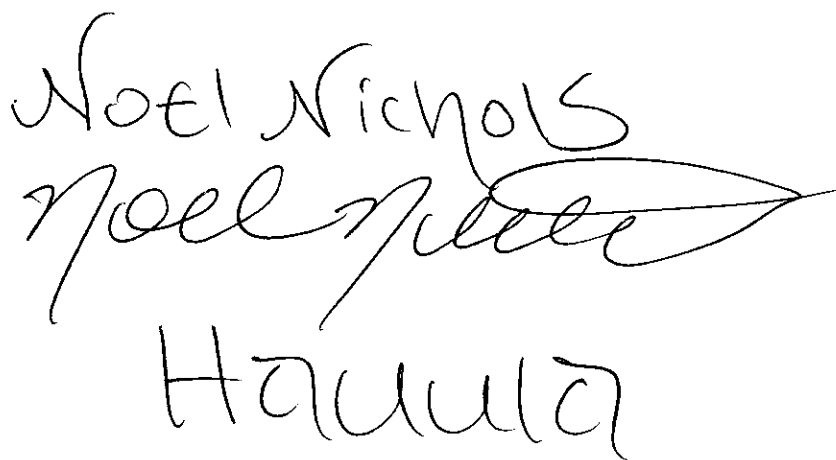 Noel Nichols
Noel Nichols
Hauula